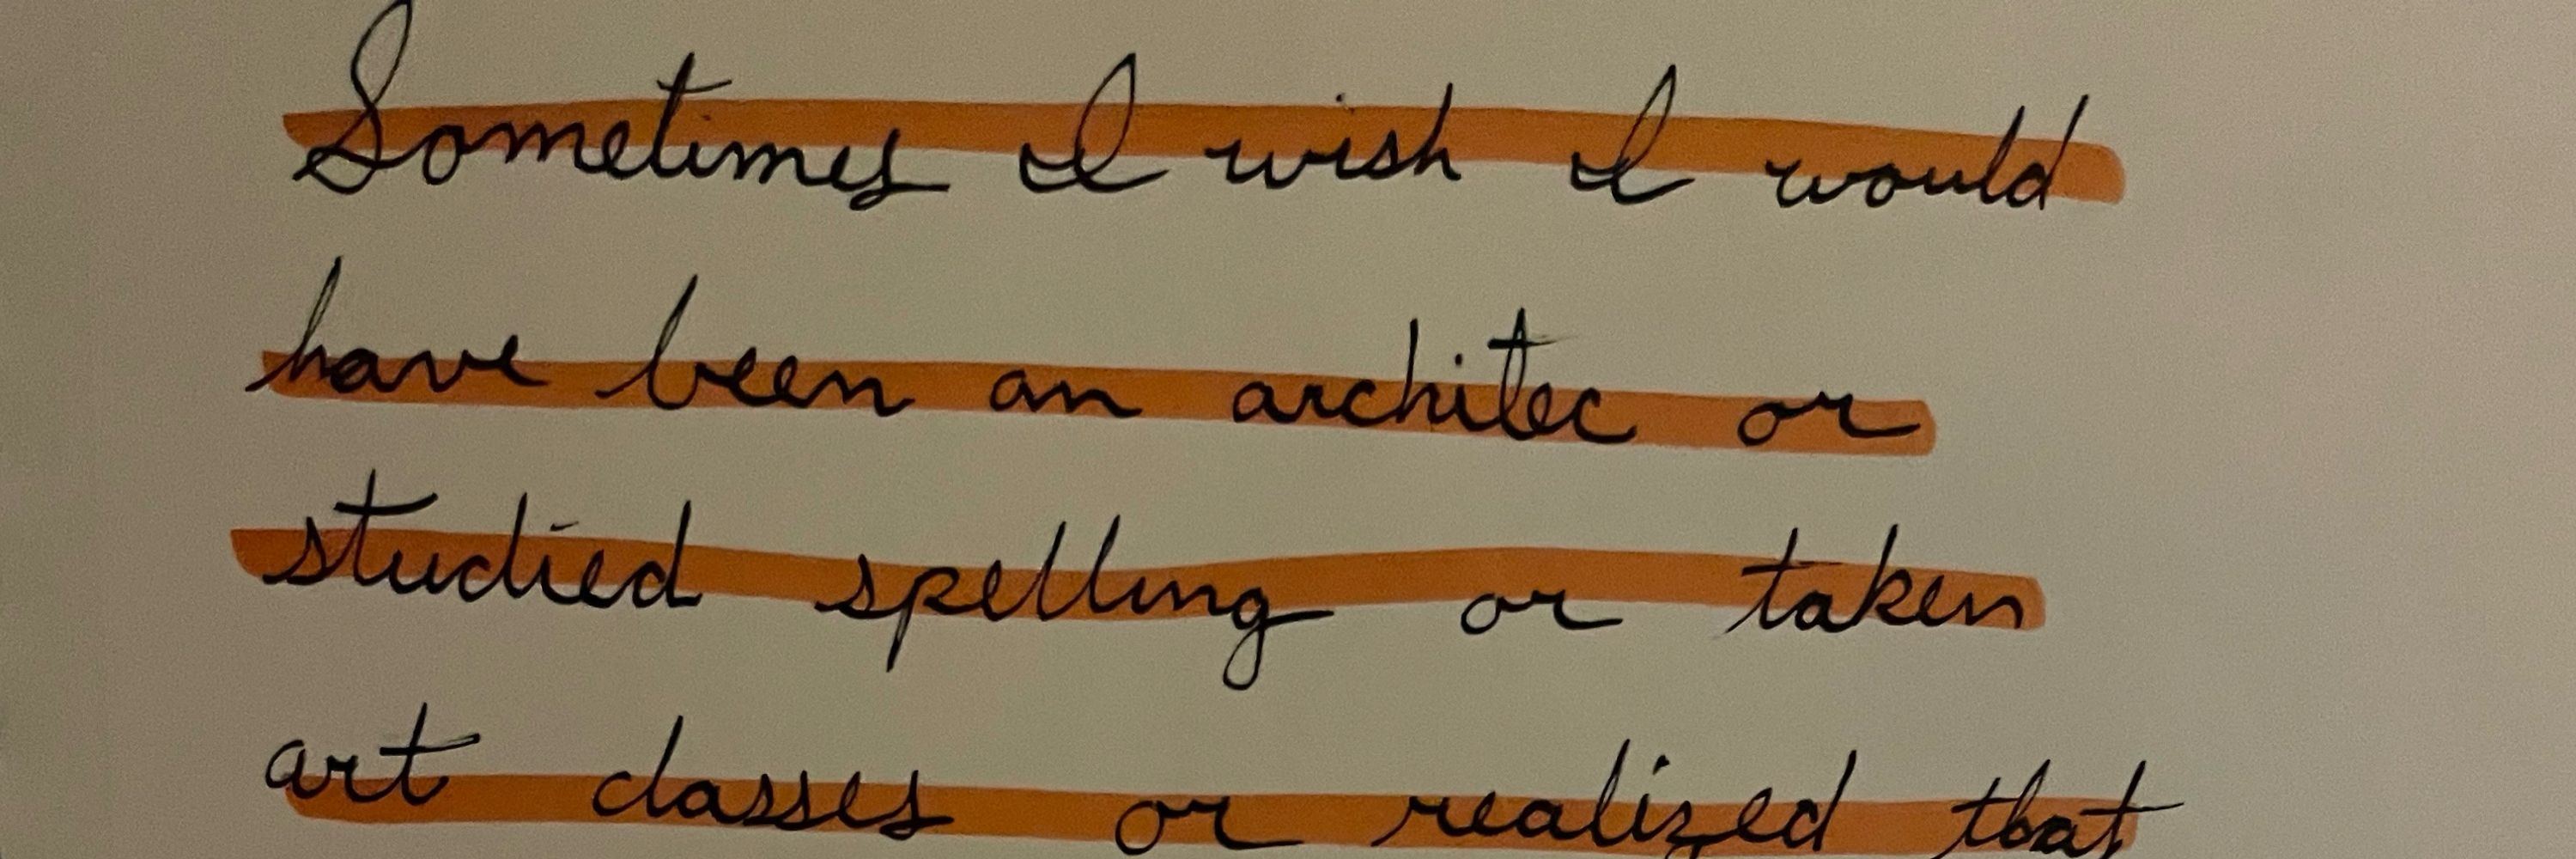 Sometimes I wish I would
have been an architec or
studied spelling or taken
art classes or realized that